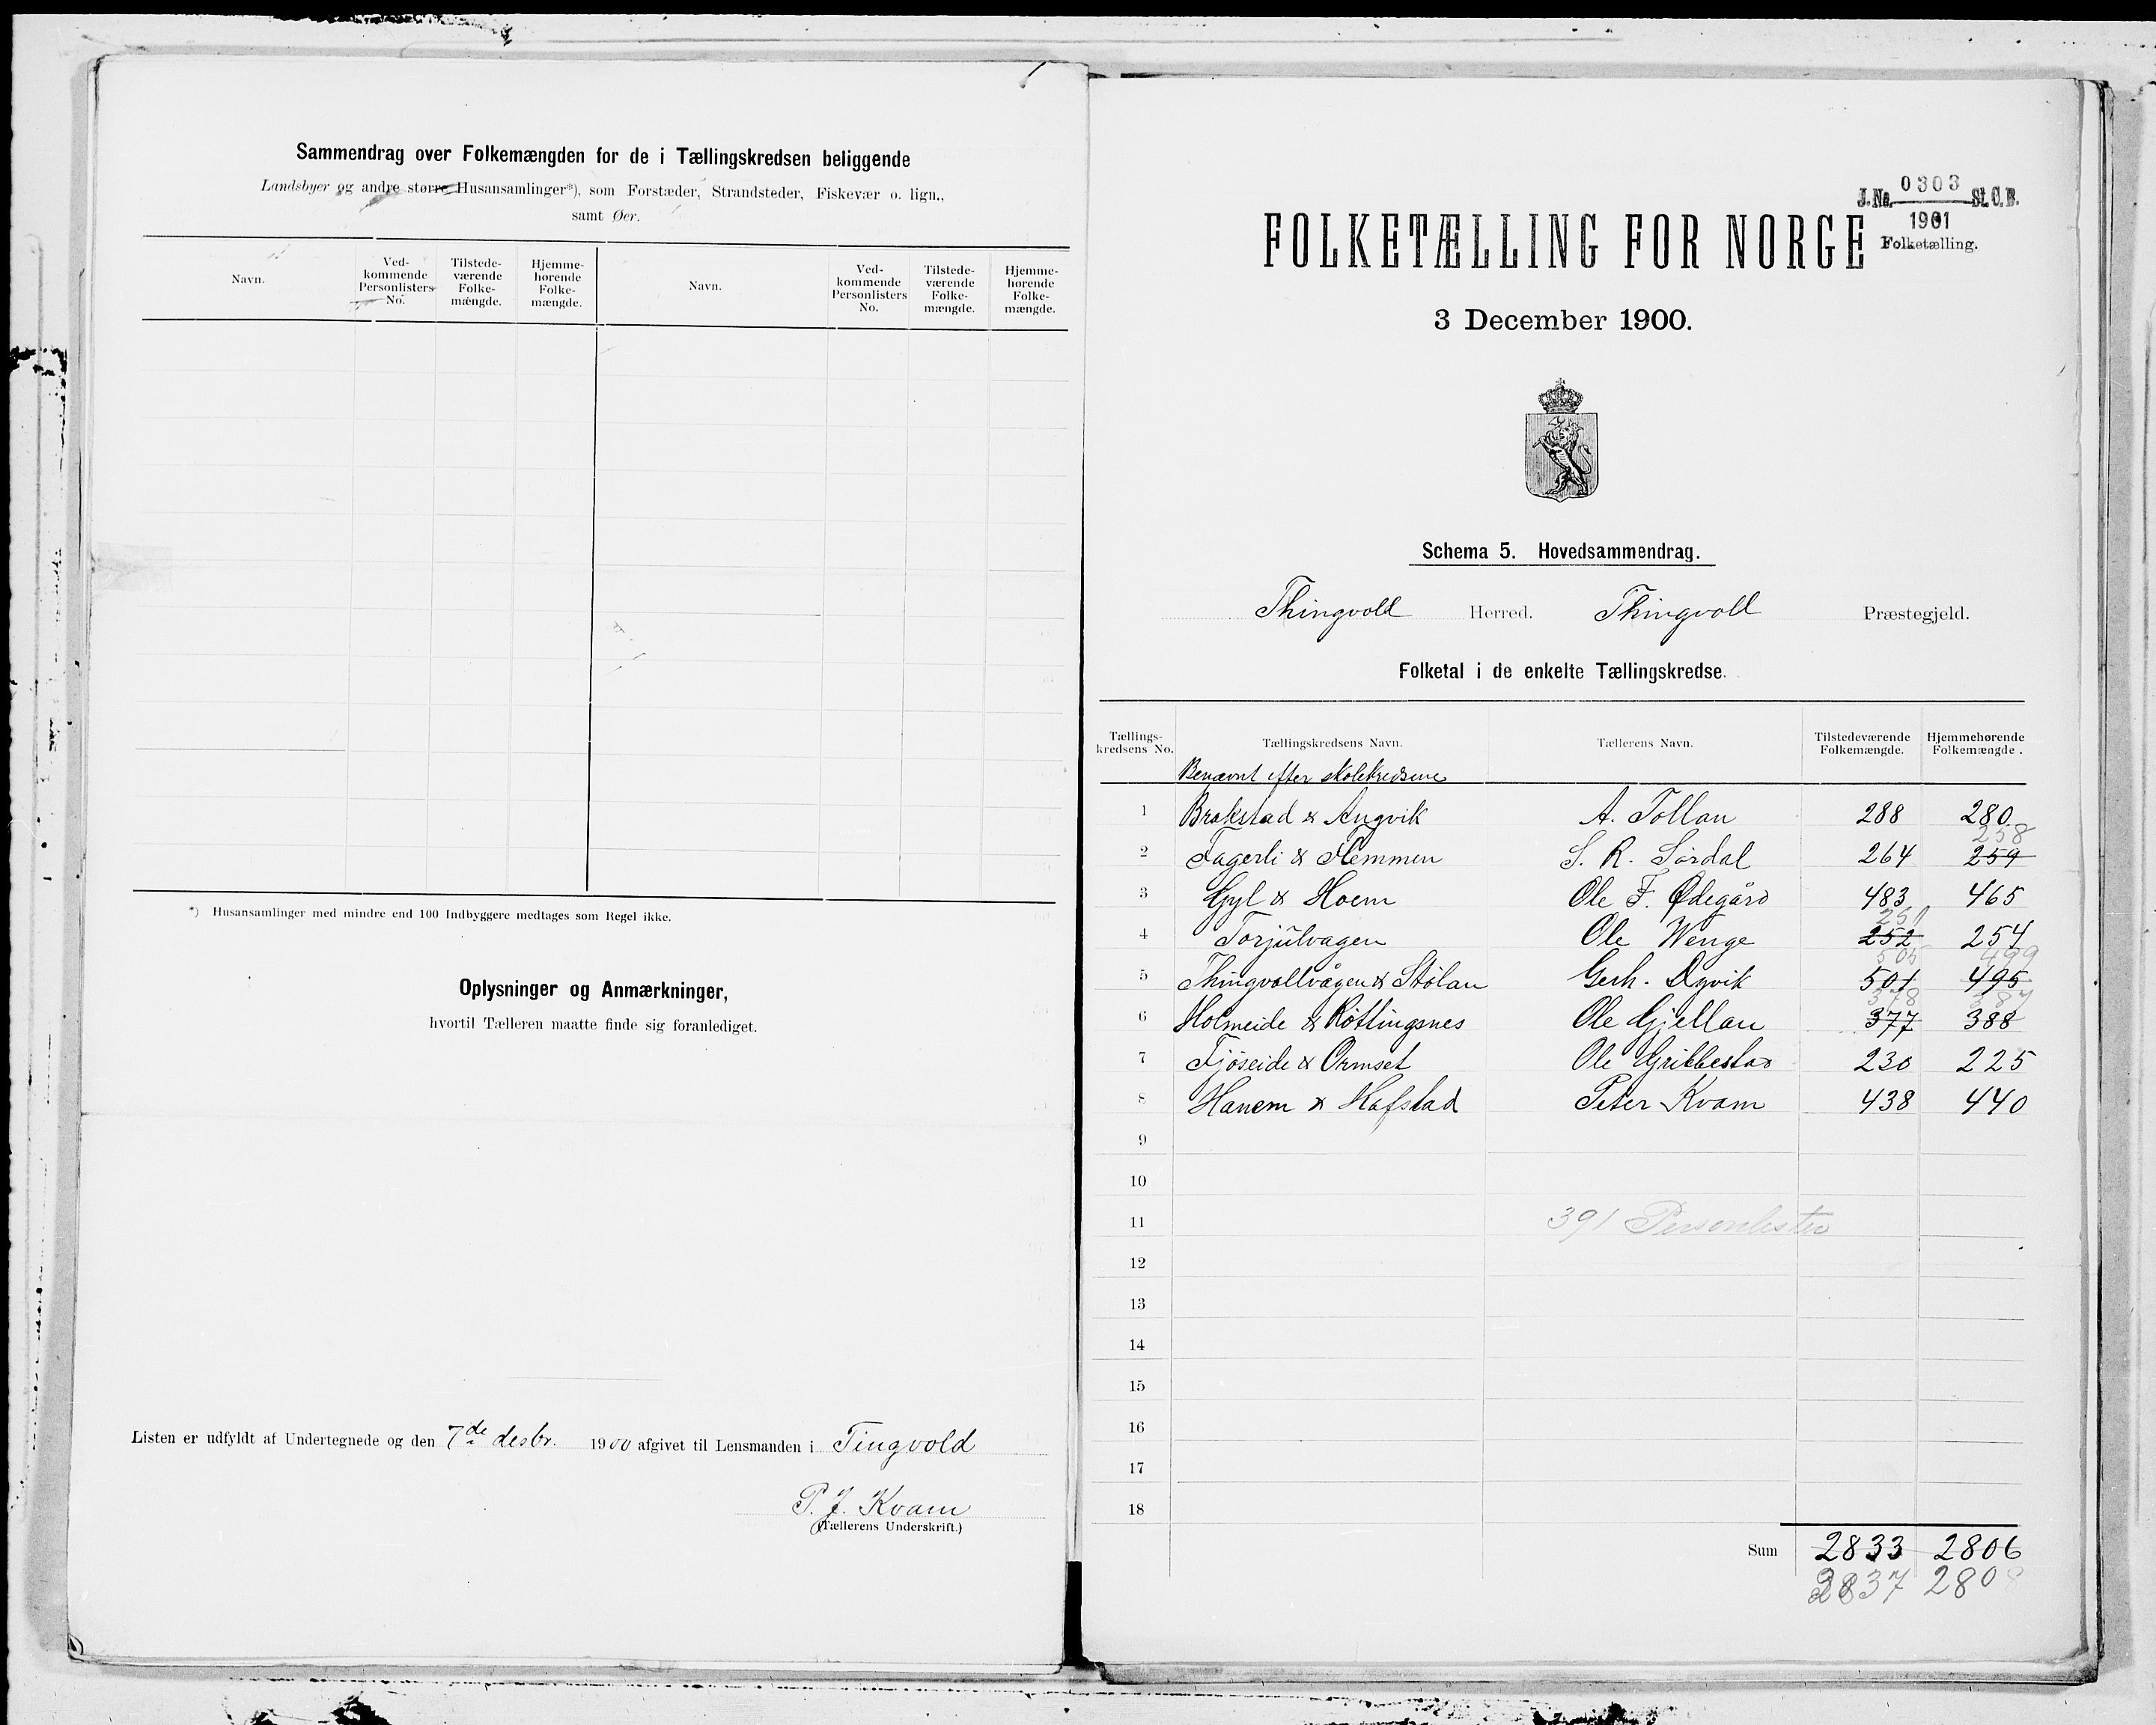 Sammendrag over Folkemængden for de i Tællingskredsen beliggende
Landsbyer og andre større Husansamlinger*), som Forstæder, Strandsteder, Fiskevær o. lign.,
samt Øer.
Navn. Ved-kommende Personlisters No. Tilstede-værende Folke-mængde. Hjemme-hørende Folke-mængde. Navn. Ved-kommende Personlisters No. Tilstede-værende Folke-mængde. Hjemme-hørende Folke-mængde.
*) Husansamlinger med mindre end 100 Indbyggere medtages som Regel ikke.
Oplysninger og Anmærkninger,
hvortil Tælleren maatte finde sig foranlediget.
Listen er udfyldt af Undertegnede og den 7de desbr. 1900 afgivet til Lensmanden i Tingvold
P. J. Kvam
(Tællerens Underskrift.)
J. No. 0303 St. C. B.
1901
Folketælling.
FOLKETÆLLING FOR NORGE
3 December 1900.
Schema 5. Hovedsammendrag.
Thingvold Herred. Thingvoll Præstegjeld.
Folketal i de enkelte Tællingskredse.
Tællings-kredsens No. Tællingskredsens Navn. Tællerens Navn. Tilstedeværende Folkemængde. Hjemmehørende Folkemængde.
Benævnt efter skolekredsene
1 Brakstad & Angvik A. Tollan 288 280
258
2 Fagerli & Flemmen S. R. Sørdal 264 259
3 Gyl & Hoem Ole F. Ødegård 483 465
251
4 Torjülvagen Ole Wenge 252 254
505 499
5 Thingvollvågen & Stölan Gerh. Dyvik 501 495
378 387
6 Holmeide & Röttingsnes Ole Gjellan 377 388
7 Fjöseide & Ormset Ole Gribbestad 230 225
8 Hanem & Hafstad Peter Kvam 438 440
9
10
11 391 Personlister
12
13
14
15
16
17
18
Sum 2833 2806
2837 2808